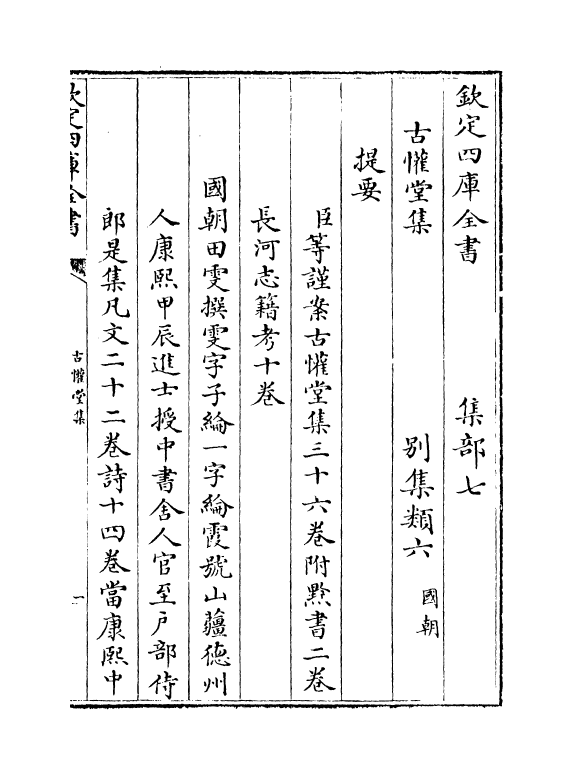 欽定四庫全書 集部七
古懽堂集 別集類六 國朝
提要
臣等謹案古懽堂集三十六卷附黔書二卷
長河志籍考十卷
國朝田雯撰雯字子綸一字綸霞號山薑德州
人康熙甲辰進士授中書舍人官至戶部侍
郎是集凡文二十二卷詩十四卷當康熙中
欽定四庫全書
古懽堂集
一